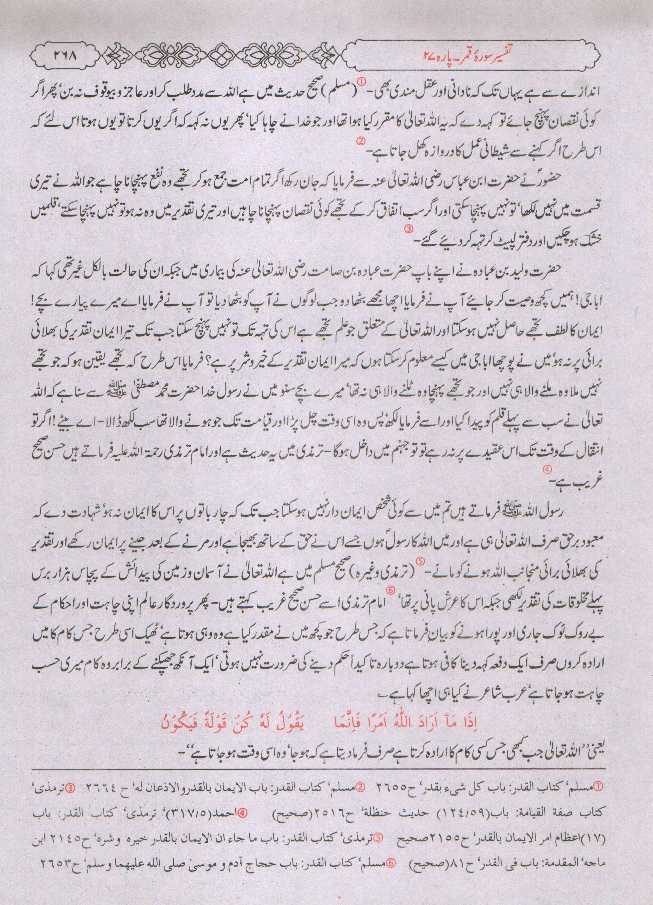 تفسیر سورۂ قمر۔ پارہ ۲۷
۲۶۸
اندازے سے ہے یہاں تک کہ نادانی اور عقل مندی بھی-① (مسلم) صحیح حدیث میں ہے اللہ سے مدد طلب کر اور عاجز و بیوقوف نہ بن' پھر اگر
کوئی نقصان پہنچ جائے تو کہہ دے کہ یہ اللہ تعالیٰ کا مقرر کیا ہوا تھا اور جو خدا نے چاہا کیا' پھر یوں نہ کہہ کہ اگر یوں کرتا تو یوں ہوتا اس لئے کہ
اس طرح اگر کہنے سے شیطانی عمل کا دروازہ کھل جاتا ہے-②
حضورؐ نے حضرت ابن عباس رضی اللہ تعالیٰ عنہ سے فرمایا کہ جان رکھ اگر تمام امت جمع ہو کر تجھے وہ نفع پہنچانا چاہے جو اللہ نے تیری
قسمت میں نہیں لکھا' تو نہیں پہنچا سکتی اور اگر سب اتفاق کر کے تجھے کوئی نقصان پہنچانا چاہیں اور تیری تقدیر میں وہ نہ ہو تو نہیں پہنچا سکتے' قلمیں
خشک ہو چکیں اور دفتر لپیٹ کر تہہ کر دیئے گئے-③
حضرت ولید بن عبادہ نے اپنے باپ حضرت عبادہ بن صامت رضی اللہ تعالیٰ عنہ کی بیماری میں جبکہ ان کی حالت بالکل غیر تھی کہا کہ
ابا جی! ہمیں کچھ وصیت کر جائیے آپ نے فرمایا اچھا مجھے بٹھا دو جب لوگوں نے آپ کو بٹھا دیا تو آپ نے فرمایا اے میرے پیارے بچے!
ایمان کا لطف تجھے حاصل نہیں ہو سکتا اور اللہ تعالیٰ کے متعلق جو علم تجھے ہے اس کی تہہ تک تو نہیں پہنچ سکتا جب تک تیرا ایمان تقدیر کی بھلائی
برائی پر نہ ہو' میں نے پوچھا ابا جی میں کیسے معلوم کر سکتا ہوں کہ میرا ایمان تقدیر کے خیر و شر پر ہے؟ فرمایا اس طرح کہ تجھے یقین ہو کہ جو تجھے
نہیں ملا وہ ملنے والا ہی نہیں اور جو تجھے پہنچا وہ ٹلنے والا ہی نہ تھا' میرے بچے سنو میں نے رسول خدا حضرت محمد مصطفیٰ ﷺ سے سنا ہے کہ اللہ
تعالیٰ نے سب سے پہلے قلم کو پیدا کیا اور اسے فرمایا لکھ' پس وہ اسی وقت چل پڑا اور قیامت تک جو ہونے والا تھا سب لکھ ڈالا- اے بیٹے! اگر تو
انتقال کے وقت تک اس عقیدے پر نہ رہے تو تو جہنم میں داخل ہوگا- ترمذی میں یہ حدیث ہے اور امام ترمذی رحمۃ اللہ علیہ فرماتے ہیں حسن صحیح
غریب ہے-④
رسول اللہ ﷺ فرماتے ہیں تم میں سے کوئی شخص ایمان دار نہیں ہو سکتا جب تک کہ چار باتوں پر اس کا ایمان نہ ہو' شہادت دے کہ
معبود برحق صرف اللہ تعالیٰ ہی ہے اور میں اللہ کا رسول ہوں جسے اس نے حق کے ساتھ بھیجا ہے اور مرنے کے بعد جینے پر ایمان رکھے اور تقدیر
کی بھلائی برائی منجانب اللہ ہونے کو مانے-⑤ (ترمذی وغیرہ) صحیح مسلم میں ہے اللہ تعالیٰ نے آسمان و زمین کی پیدائش کے پچاس ہزار برس
پہلے مخلوقات کی تقدیر لکھی جبکہ اس کا عرش پانی پر تھا'⑥ امام ترمذی اسے حسن صحیح غریب کہتے ہیں- پھر پروردگار عالم اپنی چاہت اور احکام کے
بے روک ٹوک جاری اور پورا ہونے کو بیان فرماتا ہے کہ جس طرح جو کچھ میں نے مقدر کیا ہے وہ وہی ہوتا ہے' ٹھیک اسی طرح جس کام کا میں
ارادہ کروں صرف ایک دفعہ کہہ دینا کافی ہوتا ہے دوبارہ تاکیداً حکم دینے کی ضرورت نہیں ہوتی' ایک آنکھ جھپکنے کے برابر وہ کام میری حسب
چاہت ہو جاتا ہے' عرب شاعر نے کیا ہی اچھا کہا ہے ؂
اِذَا مَآ اَرَادَ اللّٰهُ اَمْرًا فَاِنَّمَا يَقُوْلُ لَهٗ كُنْ قَوْلَةً فَيَكُوْنُ
یعنی "اللہ تعالیٰ جب کبھی جس کسی کام کا ارادہ کرتا ہے صرف فرما دیتا ہے کہ ہو جا' وہ اسی وقت ہو جاتا ہے"-
①مسلم' كتاب القدر: باب كل شيء بقدر' ح ۲۶۵۵ ②مسلم' كتاب القدر: باب الايمان بالقدر والاذعان له' ح ۲۶۶۴ ③ترمذی'
كتاب صفة القيامة: باب (۱۲۴/۵۹) حديث حنظلة' ح ۲۵۱۶ (صحيح) ④احمد (۳۱۷/۵)' ترمذی' كتاب القدر: باب
(۱۷) اعظام امر الايمان بالقدر' ح ۲۱۵۵ صحيح ⑤ترمذی' كتاب القدر: باب ما جاء ان الايمان بالقدر خيره و شره' ح ۲۱۴۵ ابن
ماجه' المقدمة: باب فى القدر' ح ۸۱ (صحيح) ⑥مسلم' كتاب القدر: باب حجاج آدم و موسىٰ صلى الله عليهما وسلم' ح ۲۶۵۳